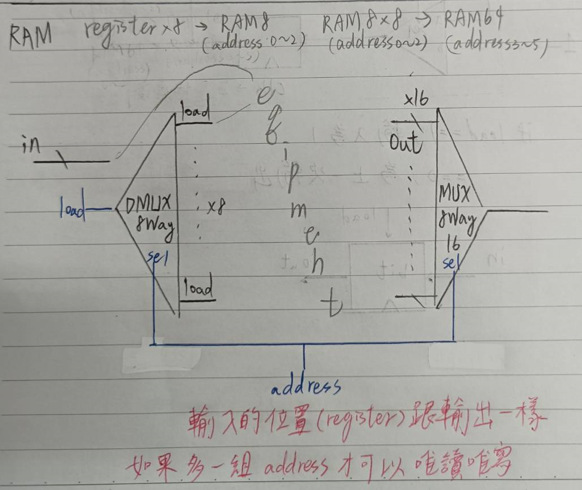 RAM register x8 → RAM8 RAM8x8 → RAM64
(address 0~2) (address0~2) (address3~5)
load
in
x16
out
load
DMUX
8Way
sel
x8
MUX
8Way
16
sel
load
e
q
i
p
m
e
h
t
address
輸入的位置(register)跟輸出一樣
如果多一組 address 才可以唯讀唯寫